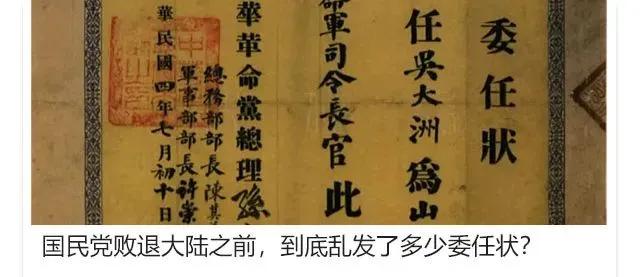 委任狀
任吳大洲為山
命軍司令長官此
華革命黨總理孫
總務部部長陳其
軍事部部長許崇
華民國四年七月初十日
国民党败退大陆之前，到底乱发了多少委任状？